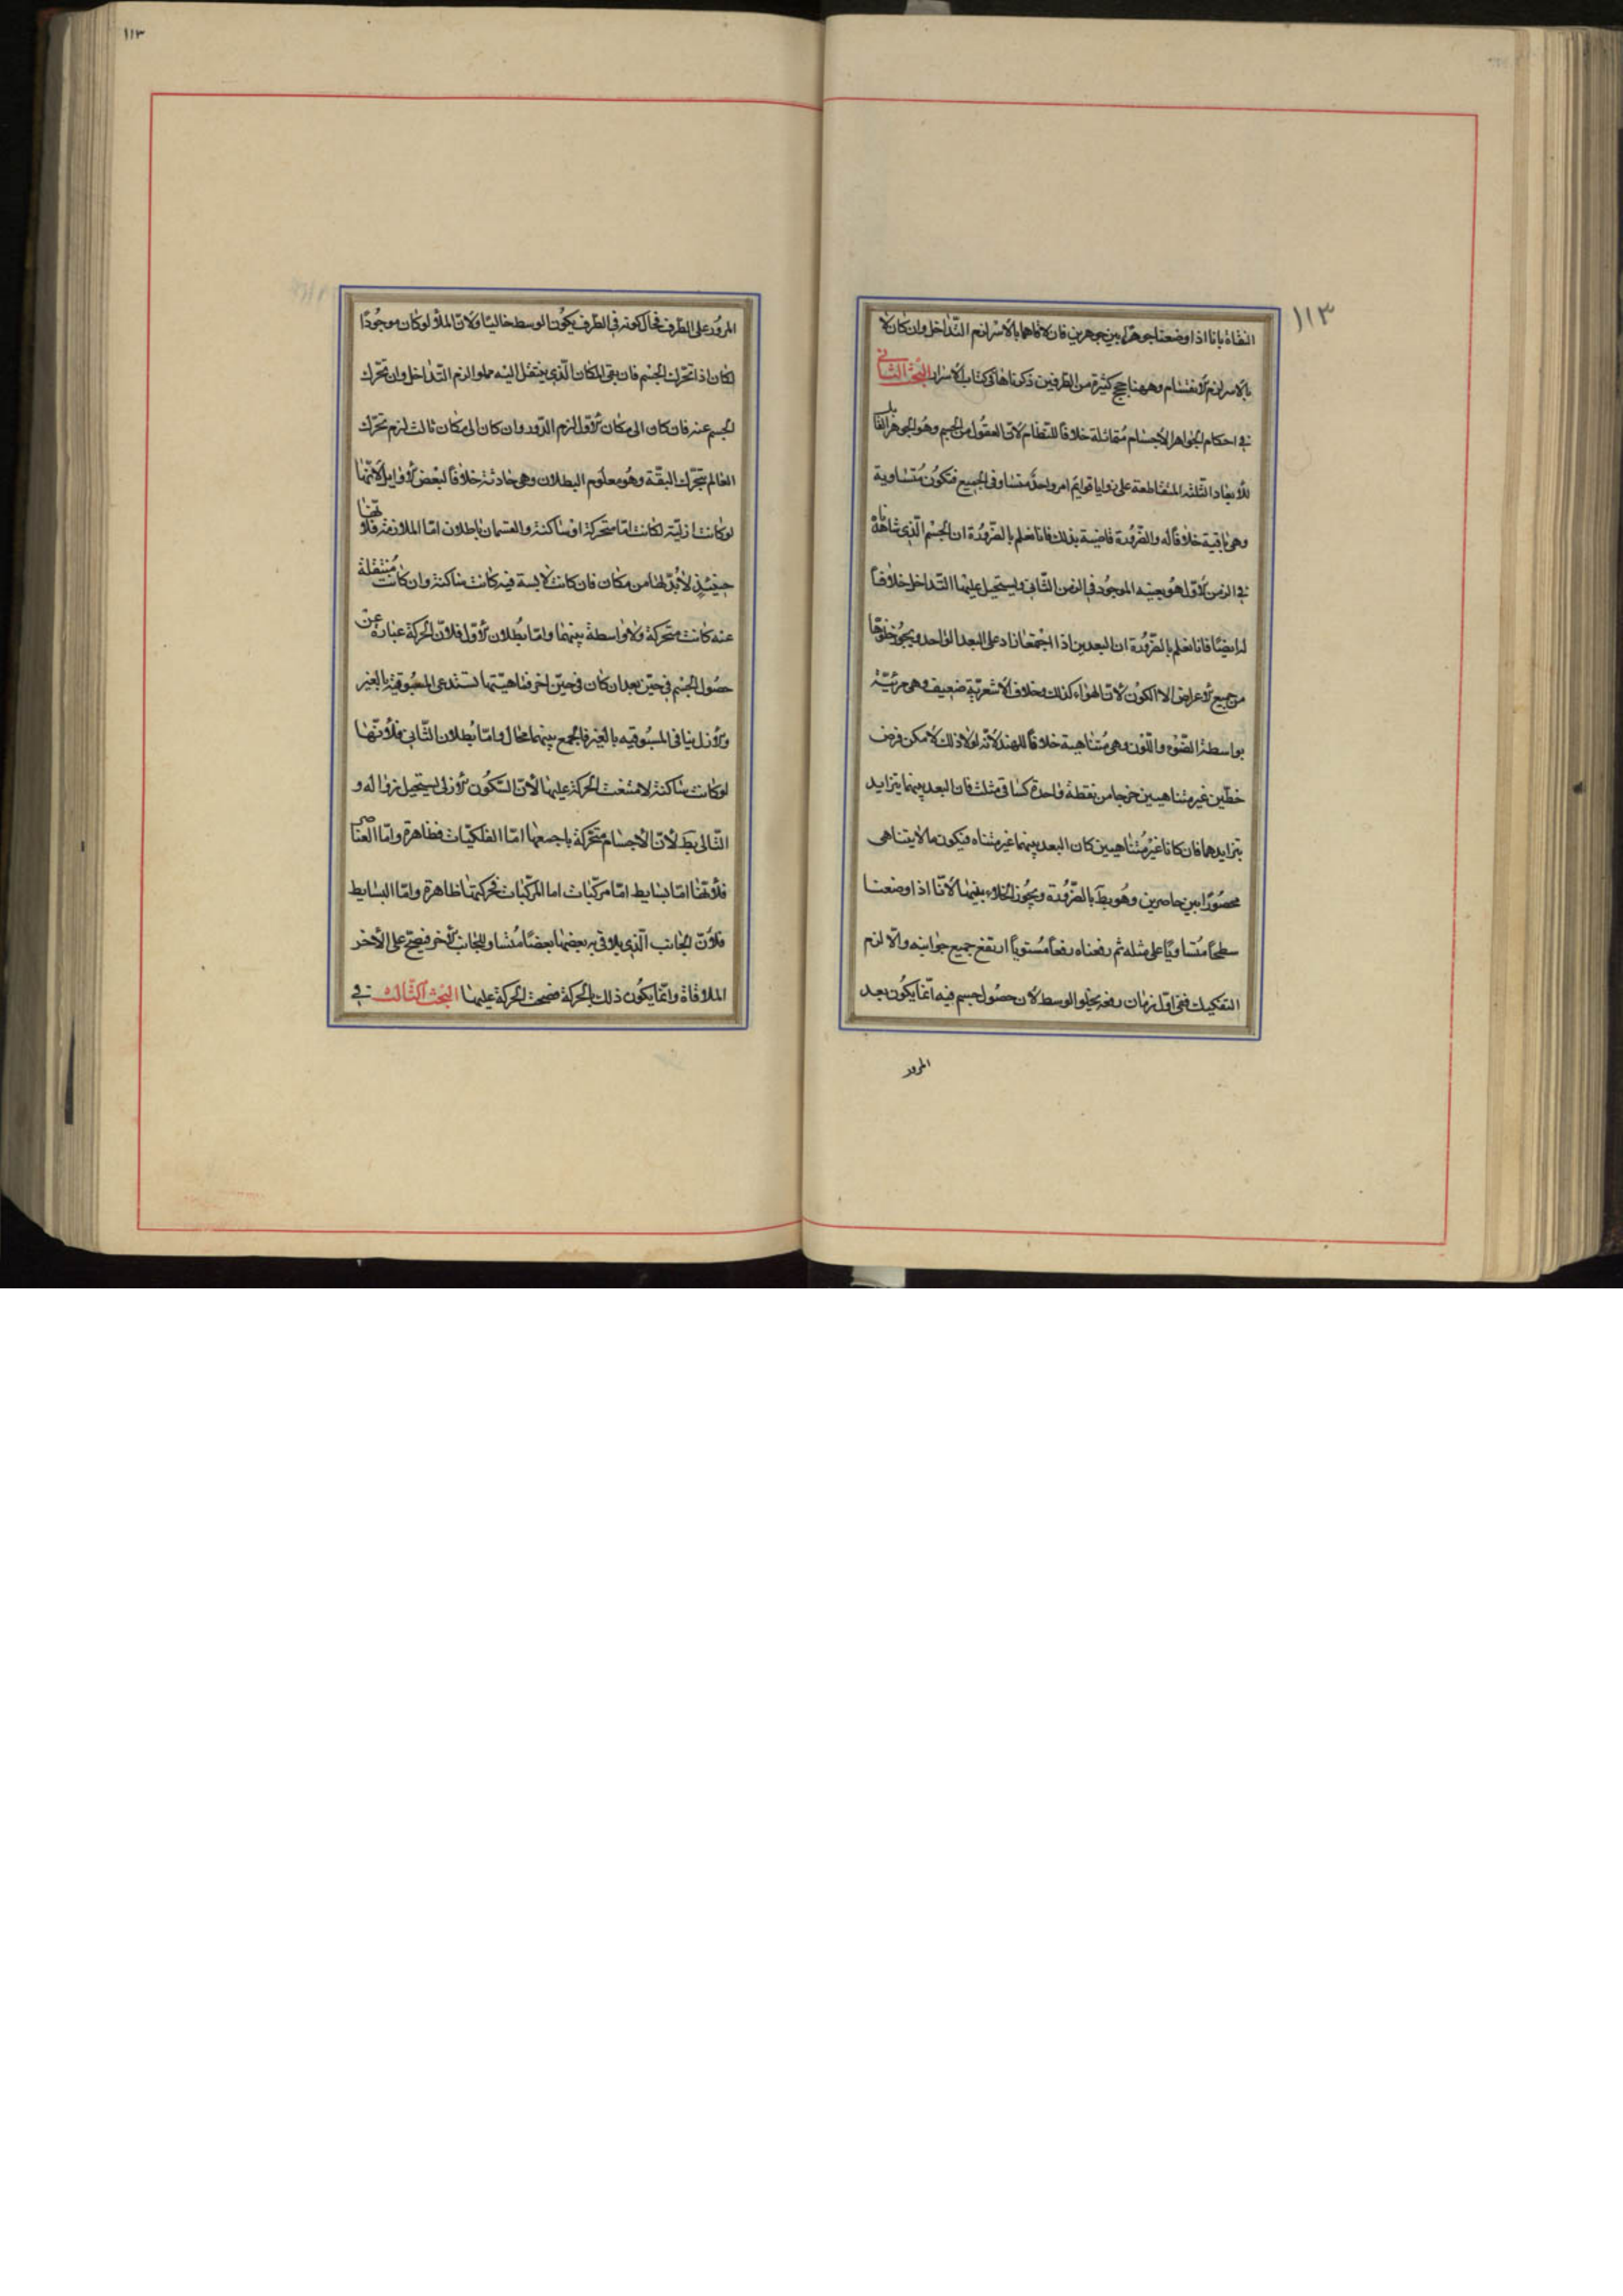 ١١٣
النفاة بانا اذا وضعنا جوهرا بين جوهرين فان لاقاهما بالاسر لزم التداخل وان كان لا
بالاسر لزم الانقسام وههنا حجج كثيرة من الطرفين ذكرناها في كتاب الاسرار البحث الثاني
في احكام الجواهر الاجسام متماثلة خلافا للنظام لان المعقول من الجسم وهو الجوهر القابل
للابعاد الثلثة المتقاطعة على زوايا قوايم امر واحد متساو في الجميع فتكون متساوية
وهي باقية خلافا له والضرورة قاضية بذلك فانا نعلم بالضرورة ان الجسم الذي شاهدناه
في الزمن الاول هو بعينه الموجود في الزمن الثاني ويستحيل عليها التداخل خلافا
له ايضا فانا نعلم بالضرورة ان البعدين اذا اجتمعا زاد على البعد الواحد ويجوز خلوها
من جميع الاعراض الا الكون لان الهواء كذلك وخلاف الاشعرية ضعيف وهي مرئية
بواسطة الضوء واللون وهي متناهية خلافا للهند لانه لولا ذلك لامكن فرض
خطين غير متناهيين خرجا من نقطة واحدة كساقي مثلث فان البعد بينهما يتزايد
بتزايدهما فان كانا غير متناهيين كان البعد بينهما غير متناه فيكون ما لا يتناهى
محصورا بين حاصرين وهو بط بالضرورة ويجوز الخلاء بينها لانا اذا وضعنا
سطحا متساويا على مثله ثم رفعناه رفعا مستويا ارتفع جميع جوانبه والا لزم
التفكيك ففي اول زمان رفعه يخلو الوسط لان حصول جسم فيه انما يكون بعد
المرور
١١٣
المرور على الطرف فحال كونه في الطرف يكون الوسط خاليا ولان الملأ لو كان موجودا
لكان اذا تحرك الجسم فان بقي المكان الذي ينتقل اليه مملوا لزم التداخل وان تحرك
الجسم عنه فان كان الى مكان الاول لزم الدور وان كان الى مكان ثالث لزم تحرك
العالم بتحرك البقة وهو معلوم البطلان وهي حادثة خلافا لبعض الاوايل لانها
لو كانت ازلية لكانت اما متحركة او ساكنة والقسمان باطلان اما الملازمة فلانها
حينئذ لا بد لها من مكان فان كانت لابسة فيه كانت ساكنة وان كانت منتقلة
عنه كانت متحركة ولا واسطة بينهما واما بطلان الاول فلان الحركة عبارة عن
حصول الجسم في حيز بعد ان كان في حيز اخر فماهيتها تستدعي المسبوقية بالغير
والازل ينافي المسبوقيه بالغير فالجمع بينهما محال واما بطلان الثاني فلانها
لو كانت ساكنة لامتنعت الحركة عليها لان السكون الازلي يستحيل زواله و
التالي بط لان الاجسام متحركة باجمعها اما الفلكيات فظاهرة واما العناصر
فلانها اما بسايط اما مركبات اما المركبات فحركتها ظاهرة واما البسايط
فلان الجانب الذي يلاقي به بعضها بعضا مساو للجانب الاخر فيصح على الاخر
الملاقاة وانما يكون ذلك بالحركة فصحت الحركة عليها البحث الثالث في